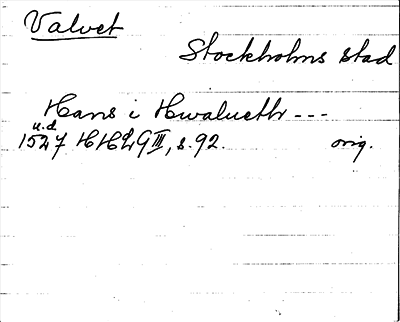 Valvet
Stockholms stad
Hans i Hwalueth ---
u.d.
1527 HH 29 III, s. 92. orig.